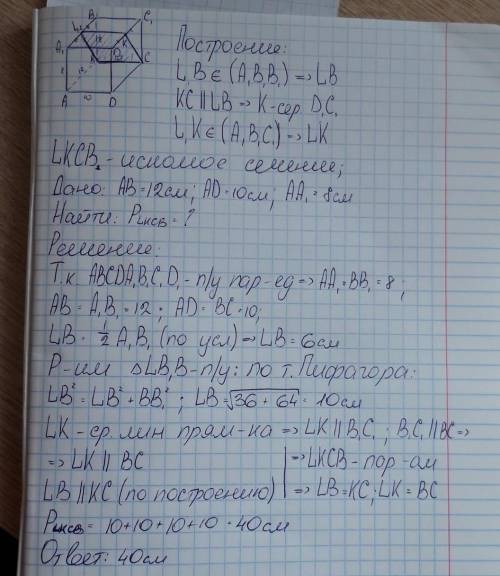 B₁ C₁
A₁ D₁
L K
B C
A D
12
10
8
Построение:
L, B ∈ (A₁B₁B₁) => LB
KC || LB => K - сер. D₁C₁
L, K ∈ (A₁B₁C₁) => LK
LKCB - искомое сечение;
Дано: AB = 12см; AD = 10см; AA₁ = 8см
Найти: Pʟᴋᴄʙ = ?
Решение:
Т.к. ABCDA₁B₁C₁D₁ - п/у пар-ед => AA₁ = BB₁ = 8;
AB = A₁B₁ = 12; AD = BC = 10;
LB = ½ A₁B₁ (по усл) => LB = 6см
Р-им △LB₁B - п/у: по т. Пифагора:
LB² = LB² + BB₁²; LB = √36 + 64 = 10см
LK - ср. лин прям-ка => LK || B₁C₁; B₁C₁ || BC =>
=> LK || BC => LKCB - пар-ам
LB || KC (по построению) => LB = KC; LK = BC
Pʟᴋᴄʙ = 10+10+10+10 = 40см
Ответ: 40см